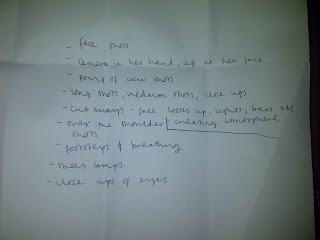 - face shots
- camera in her hand, up at her face
- point of view shots
- long shots, medium shots, close ups
- cut aways - face looks up, lights, bars etc
- over the shoulder creating atmosphere
shots
- footsteps & breathing
- street lamps
- close ups of eyes